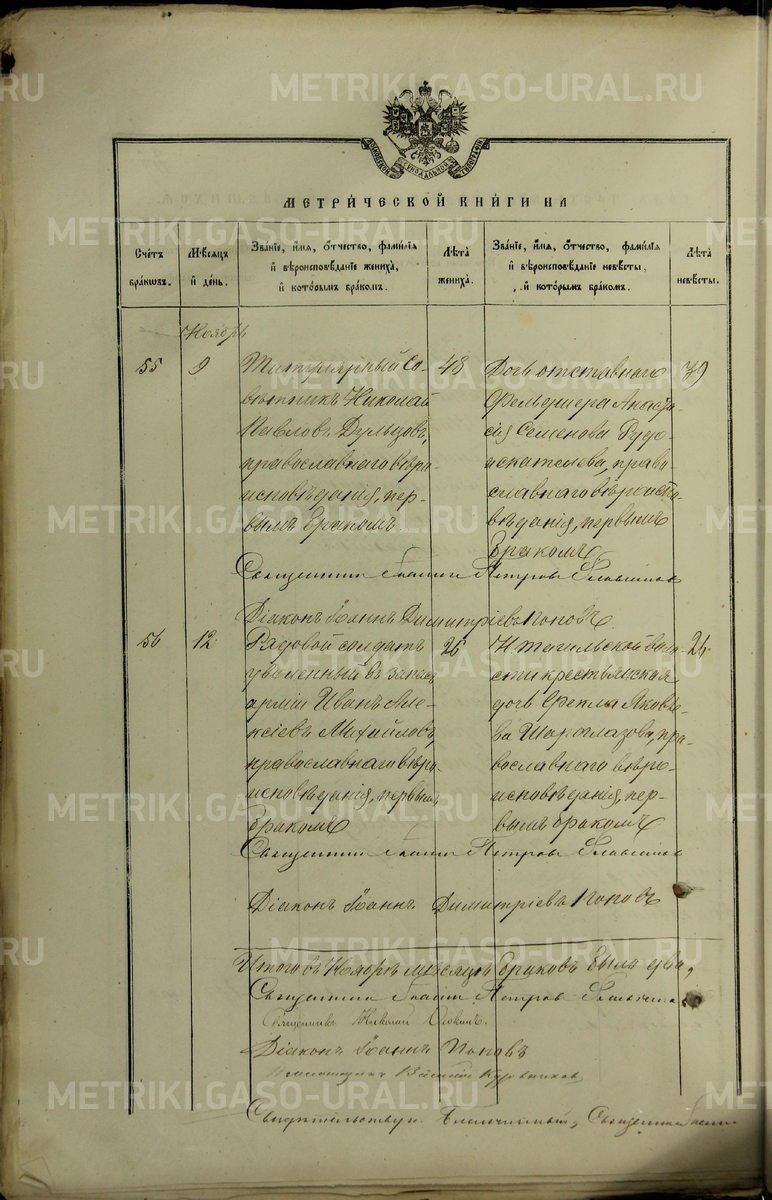 METRIKI.GASO-URAL.RU
МЕТРИЧЕСКОЙ КНИГИ НА
Счетъ браковъ.
Мѣсяцъ и день.
Званіе, имя, отчество, фамилія и вѣроисповѣданіе жениха, и которымъ бракомъ.
Лѣта жениха.
Званіе, имя, отчество, фамилія и вѣроисповѣданіе невѣсты, и которымъ бракомъ.
Лѣта невѣсты.
Ноябрь
55
9
Титулярный Со-
вѣтникъ Николай
Павловъ Дульцовъ,
православнаго вѣро
исповѣданія, пер-
вымъ бракомъ
48
Дочь отставнаго
Фельдшера Анаста-
сія Семенова Рудо-
искателева, право-
славнаго вѣроиспо-
вѣданія, первымъ
бракомъ
39
Священникъ Іоаннъ Петровъ
Діаконъ Іоаннъ Димитріевъ Поповъ
56
12
Рядовой солдатъ
уволенный въ запасъ
арміи Иванъ Але-
ксіевъ Михайловъ,
православнаго вѣро
исповѣданія, первымъ
бракомъ
26
Н Тагильской воло-
сти крестьянская
дочь Ѳекла Яковле-
ва Шароглазова, пра-
вославнаго вѣро-
исповѣданія, пер-
вымъ бракомъ
26
Священникъ Іоаннъ Петровъ
Діаконъ Іоаннъ Димитріевъ Поповъ
Итого въ Ноябрѣ мѣсяцѣ браковъ было два,
Священникъ Іоаннъ Петровъ
Священникъ Николай
Діаконъ Іоаннъ Поповъ
Псаломщикъ Василій
Свидѣтельствую Благочинный, Священникъ